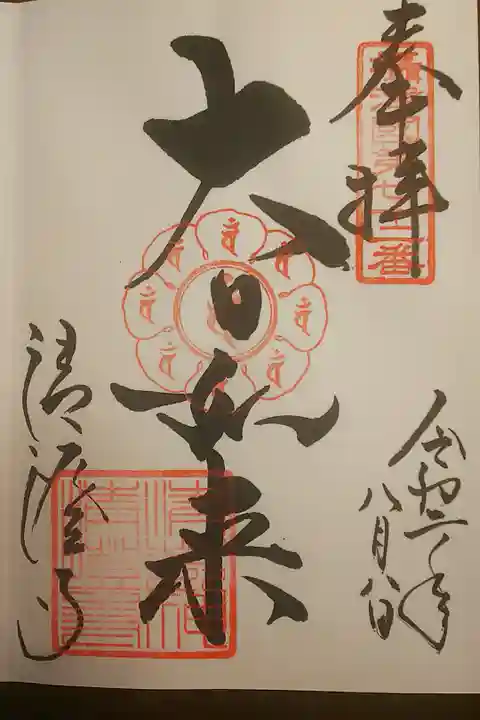 奉拝
令和二年
八月八日
大日如来
清澄寺